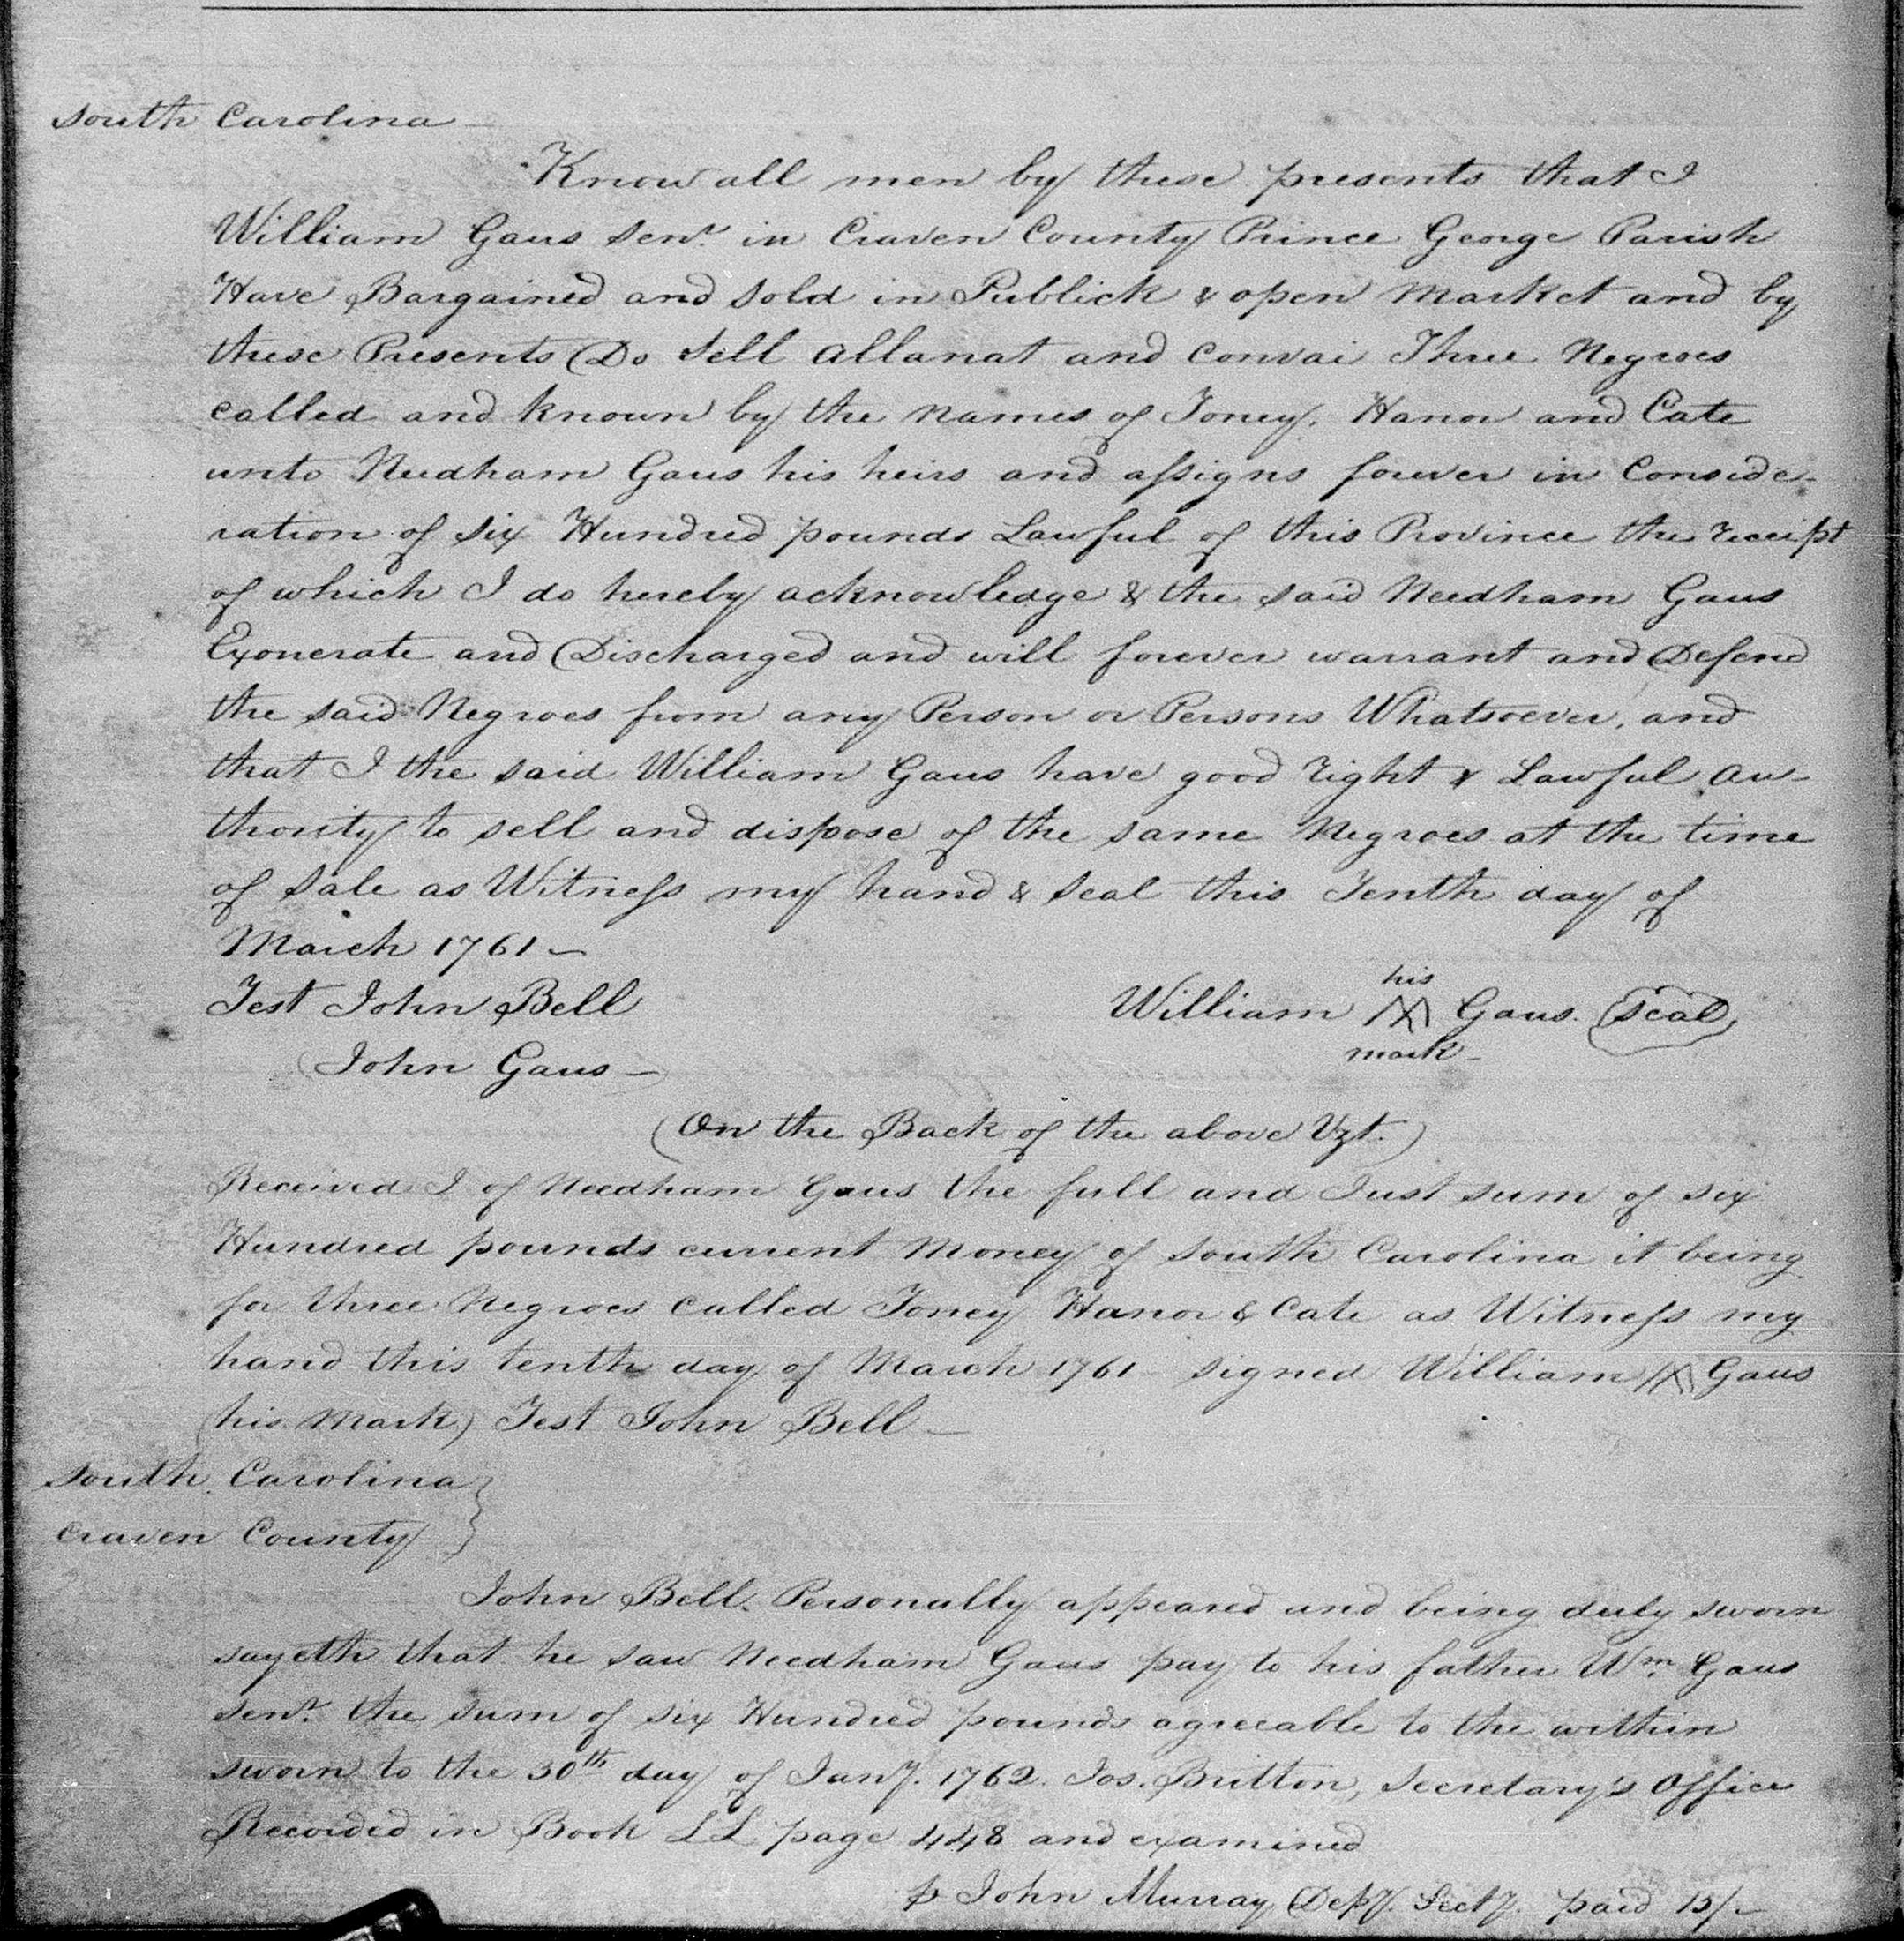 South Carolina
Know all men by these presents that I
William Gaus Senr. in Craven County Prince George Parish
Have Bargained and Sold in Publick & open Market and by
these Presents Do Sell allanat and Convai Three Negroes
called and known by the Names of Toney, Hanor and Cate
unto Needham Gaus his heirs and assigns forever in Conside-
ration of six Hundred pounds Lawful of this Province the receipt
of which I do hereby acknowledge & the said Needham Gaus
Exonerate and Discharged and will forever warrant and Defend
the said Negroes from any Person or Persons Whatsoever, and
that I the said William Gaus have good right & Lawful au-
thority to sell and dispose of the same Negroes at the time
of Sale as Witness my hand & Seal this Tenth day of
March 1761 —
Test John Bell
his
William X Gaus. Seal
mark —
John Gaus —
(On the Back of the above Vzt.)
Received I of Needham Gaus the full and Just sum of six
Hundred pounds current Money of South Carolina it being
for three Negroes called Toney Hanor & Cate as Witness my
hand this tenth day of March 1761 signed William X Gaus
(his Mark) Test John Bell —
South Carolina }
Craven County }
John Bell Personally appeared and being duly sworn
sayeth that he saw Needham Gaus pay to his father Wm. Gaus
Senr. the sum of six Hundred pounds agreeable to the within
sworn to the 30th day of Jany. 1762. Jos. Britton, Secretary's Office
Recorded in Book LL page 448 and examined
p John Murray Depy. Secty. paid 15/-